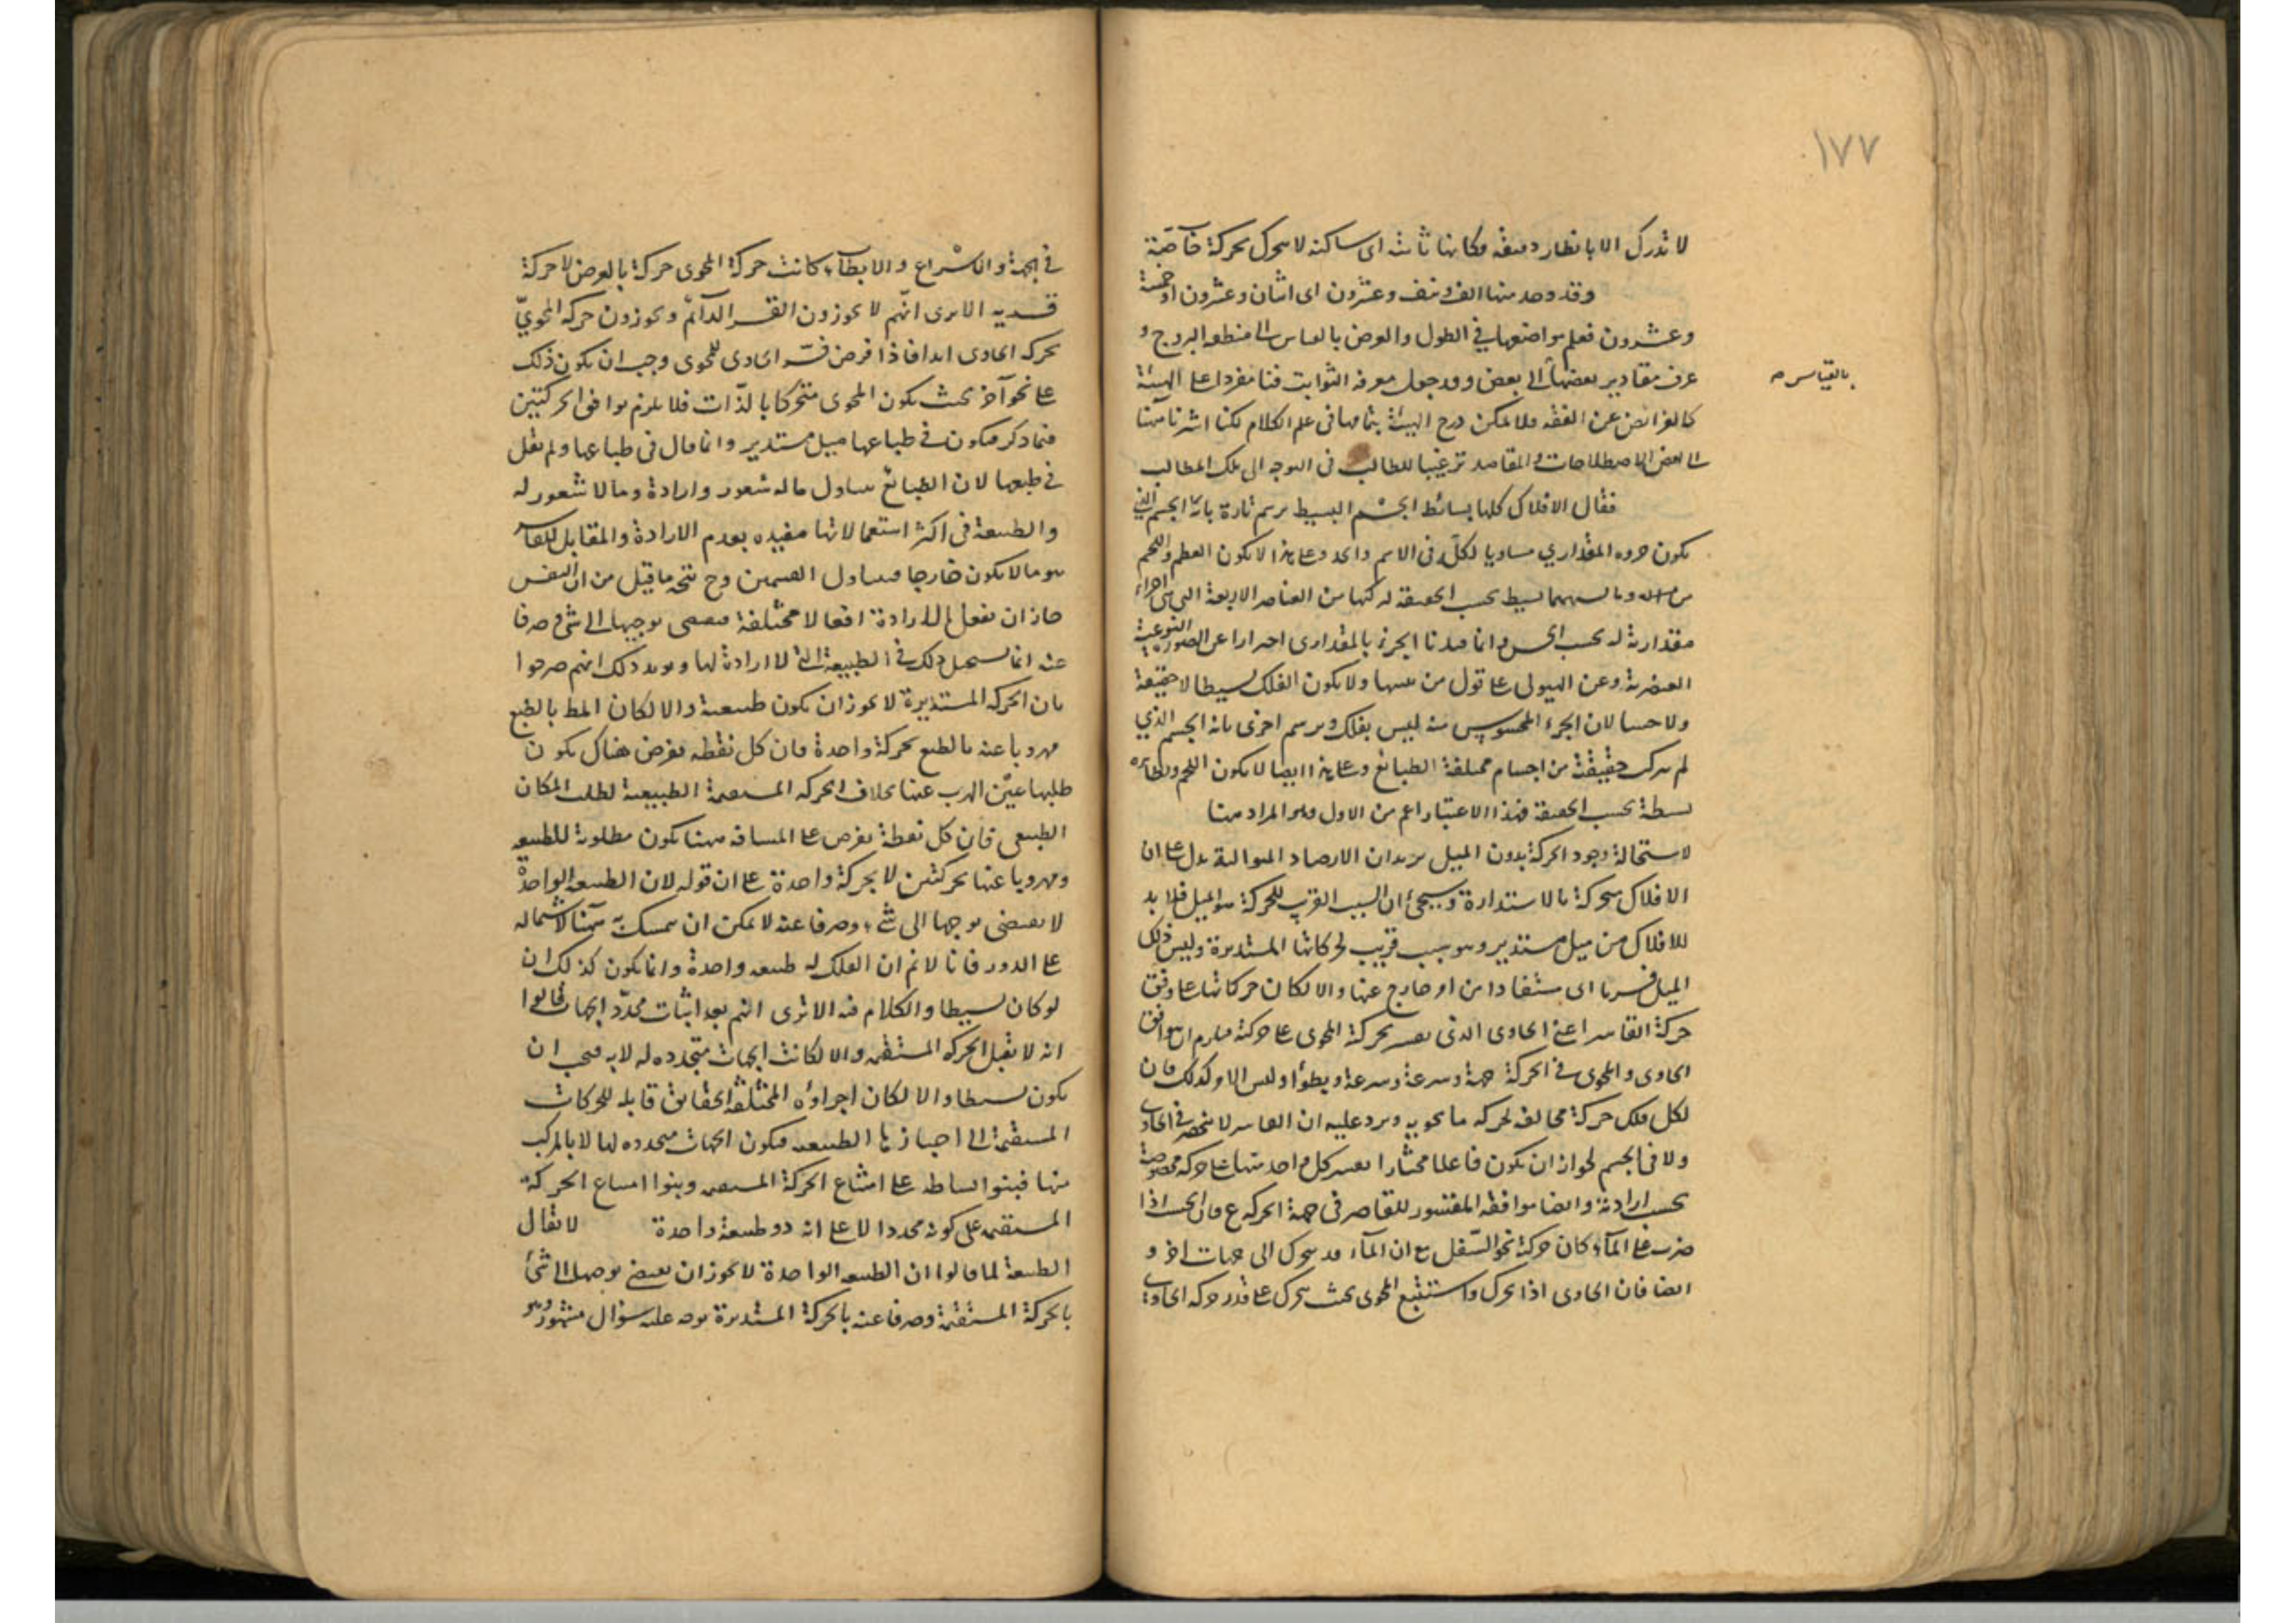 ١٧٧
لا تدرك الا بانظار دقيقة وكانها ثابتة اى ساكنة لا يتحرك بحركة خاصة
وقد وجد منها الف ونيف وعشرون اى اثنان وعشرون او خمسة
وعشرون فعلم مواضعها في الطول والعرض بالقياس الى منطقة البروج و
عرف مقادير بعضها الى بعض وقد جعل معرفة الثوابت فنا مفردا على الهيئة
بالقياس صح
كالفرائض عن الفقه ولا يمكن درج الهيئة بتمامها فى علم الكلام لكنا اشرنا هنا
الى بعض الاصطلاحات والمقاصد ترغيبا للطالب فى التوجه الى تلك المطالب
فقال الافلاك كلها بسائط الجسم البسيط يرسم تارة بانه الجسم الذي
يكون جزوه المقداري مساويا لكله فى الاسم والحد وعلى هذا لا يكون العظم واللحم
بسيط بحسب الحقيقة لتركبها من العناصر الاربعة التى هى اجزاء
مقدارية له بحسب الحس وانما قيدنا الجزء بالمقدارى احترازا عن الصور النوعية
العنصرية وعن الهيولى على قول من يثبتها ولا يكون الفلك بسيطا لا حقيقة
ولا حسا لان الجزء المحسوس منه ليس بفلك ويرسم اخرى بانه الجسم الذي
لم يتركب حقيقة من اجسام مختلفة الطبائع وعلى هذا ايضا لا يكون اللحم ونظائره
بسيطة بحسب الحقيقة فهذا الاعتبار اعم من الاول وهو المراد هنا
لاستحالة وجود الحركة بدون الميل يريد ان الارصاد المتوالية يدل على ان
الافلاك متحركة بالاستدارة وسيجئ ان السبب القريب للحركة هو الميل فلا بد
للافلاك من ميل مستدير وهو سبب قريب لحركاتها المستديرة وليس ذلك
الميل قسريا اى مستفادا من امر خارج عنها والا لكان حركاتها على وفق
حركة القاسر اعنى الحاوى الذى يقسر بحركة المحوى على حركته فيلزم ان يوافق
الحاوى والمحوى فى الحركة جهة وسرعة وبطؤا وليس الامر كذلك فان
لكل فلك حركة مخالفة لحركة ما يحويه ويرد عليه ان القاسر لا ينحصر فى الحاوى
ولا فى الجسم لجواز ان يكون فاعلا مختارا يقسر كل واحد منها على حركة مخصوصة
بحسب ارادته وايضا موافقة المقسور للقاصر فى جهة الحركة ع فان الخشب اذا
ضرب على الماء كان حركته نحو السفل مع ان الماء قد يتحرك الى جهات اخر و
ايضا فان الحاوى اذا تحرك واستتبع المحوى بحيث يتحرك على قدر حركة الحاوى
في الجهة والاسراع والابطاء كانت حركة المحوى حركة بالعرض لا حركة
قسرية الا يرى انهم لا يجوزون القسر الدائم ويجوزون حركة المحوي
بحركة الحاوى ابدا فاذا فرض قسر الحاوى للمحوى وجب ان يكون ذلك
على نحو آخر بحيث يكون المحوى متحركا بالذات فلا يلزم توافق الحركتين
فيما ذكر فيكون في طباعها ميل مستدير وانما قال فى طباعها ولم يقل
في طبعها لان الطبائع يتناول ما له شعور وارادة وما لا شعور له
والطبيعة فى اكثر استعمالاتها مقيدة بعدم الارادة والمقابل للقاسر
هو ما لا يكون خارجا فيتناول القسمين وح يتجه ما قيل من ان النفس
جاز ان يفعل بالارادة افعالا مختلفة فيقتضى توجيها الى شئ وصرفا
عنه انما يستحيل ذلك في الطبيعة التى لا ارادة لها ويويد ذلك انهم صرحوا
بان الحركة المستديرة لا يجوز ان يكون طبيعية والا لكان المط بالطبع
مهروبا عنه بالطبع بحركة واحدة فان كل نقطة يفرض هناك يكون
طلبها عين الهرب عنها بخلاف الحركة المستقيمة الطبيعية لطلب المكان
الطبيعى فان كل نقطة يفرض على المسافة هنا يكون مطلوبة للطبيعة
ومهروبا عنها بحركتين لا بحركة واحدة على ان قوله لان الطبيعة الواحدة
لا يقتضى توجها الى شئ وصرفا عنه لا يمكن ان يتمسك به هنا لاشتماله
على الدور فانا لا نم ان الفلك له طبيعة واحدة وانما يكون كذلك ان
لو كان بسيطا والكلام فيه الا ترى انهم بعد اثبات محدد الجهات قالوا
انه لا يقبل الحركة المستقيمة والا لكانت الجهات متجددة له لا به فيجب ان
يكون بسيطا والا لكان اجزاؤه المختلفة الحقائق قابلة للحركات
المستقيمة الى احيازها الطبيعية فيكون الجهات متحددة لها لا بالمركب
منها فبنوا بساطه على امتناع الحركة المستقيمة وبنوا امتناع الحركة
المستقيمة على كونه محددا لا على انه ذو طبيعة واحدة لا يقال
الطبيعة لما قالوا ان الطبيعة الواحدة لا يجوز ان يقتضى توجها الى شئ
بالحركة المستقيمة وصرفا عنه بالحركة المستديرة توجه عليه سؤال مشهور وهو